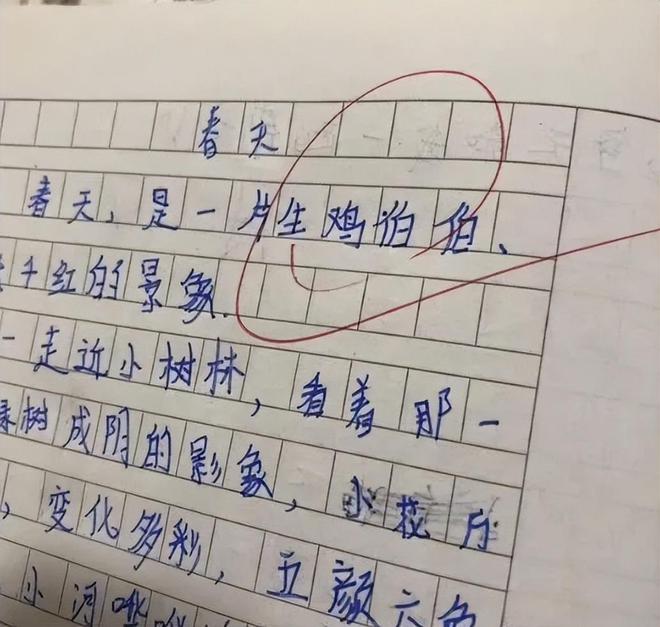 春天
春天，是一片生鸡伯伯、
千红的景象.
一走近小树林，看着那一
树成阴的影象，小花
，变化多彩，五颜六色
小河哗哗